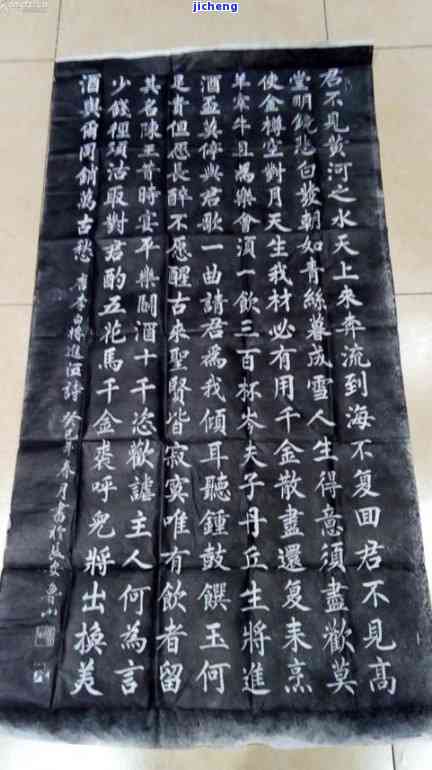 jicheng
君不見黃河之水天上来奔流到海不复回君不見高
堂明鏡悲白發朝如青絲暮成雪人生得意須盡歡莫
使金樽空對月天生我材必有用千金散盡還复来烹
羊宰牛且為樂會須一飲三百杯岑夫子丹丘生將進
酒盃莫停與君歌一曲請君為我傾耳聽鍾鼓饌玉何
足貴但愿長醉不愿醒古來聖賢皆寂寞唯有飲者留
其名陳王昔時宴平樂鬭酒十千恣歡謔主人何為言
少錢徑須沽取對君酌五花馬千金裘呼兒將出換美
酒與爾同銷萬古愁 唐李白將進酒詩 癸巳年春月書於長安